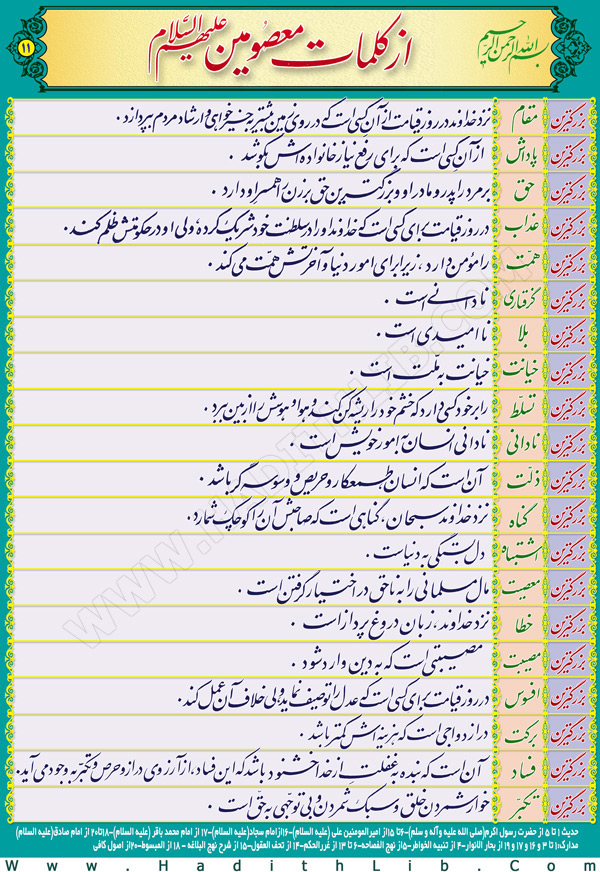 بسم الله الرحمن الرحیم
از کلمات معصومین علیهم السّلام
۱۱
بزرگترین مقام نزد خداوند در روز قیامت از آن کسی است که در روی زمین بیشتر به خیرخواهی و ارشاد مردم بپردازد .
بزرگترین پاداش از آن کسی است که برای رفع نیاز خانواده اش بکوشد .
بزرگترین حق بر مرد را پدر و مادر او و بزرگترین حق بر زن را همسر او دارد .
بزرگترین عذاب در روز قیامت برای کسی است که خداوند او را در سلطنت خود شریک کرده، ولی او در حکومتش ظلم کند .
بزرگترین همّت را مؤمن دارد ، زیرا برای امور دنیا و آخرتش همّت می کند .
بزرگترین گرفتاری نادانی است .
بزرگترین بلا نا امیدی است .
بزرگترین خیانت خیانت به ملّت است .
بزرگترین تسلّط را بر خود کسی دارد که خشم خود را ریشه کن کند و هوا و هوسش را از بین ببرد .
بزرگترین نادانی نادانی انسان به امور خویش است .
بزرگترین ذلّت آن است که انسان طمعکار و حریص و وسوسه گر باشد .
بزرگترین گناه نزد خداوند سبحان ، گناهی است که صاحبش آن را کوچک شمارد .
بزرگترین اشتباه دل بستگی به دنیاست .
بزرگترین معصیت مال مسلمانی را به ناحق در اختیار گرفتن است .
بزرگترین خطا نزد خداوند ، زبان دروغ پرداز است .
بزرگترین مصیبت مصیبتی است که به دین وارد شود .
بزرگترین افسوس در روز قیامت برای کسی است که عدل را توصیف نماید ولی خلاف آن عمل کند .
بزرگترین برکت در ازدواجی است که هزینه اش کمتر باشد .
بزرگترین فساد آن است که بنده به غفلت از خدا خشنود باشد که این فساد ، از آرزوی دراز و حرص و تکبّر به وجود می آید .
بزرگترین تکبّر خوار شمردن خلق و سبک شمردن و بی توجّهی به حقّ است .
حدیث ۱ تا ۵ از حضرت رسول اکرم(صلی الله علیه وآله و سلم)-۶تا ۱۵از امیرالمومنین علی (علیه السلام)-۱۶ازامام سجاد(علیه السلام)-۱۷ از امام محمد باقر (علیه السلام)-۱۸تا۲۰ از امام صادق(علیه السلام)
مدارک:۱ تا ۳ و ۱۶ و ۱۷ و ۱۹ از بحار الانوار-۴ از تنبیه الخواطر-۵ از نهج الفصاحه-۶ تا ۱۳ از غررالحکم-۱۴ از تحف العقول-۱۵ از شرح نهج البلاغه - ۱۸ از المبسوط-۲۰از اصول کافی
Www.HadithLib.Com
WWW.HADITHLIB.COM